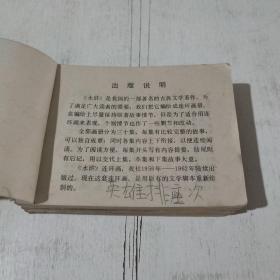 出版说明
《水浒》是我国的一部著名的古典文学著作。为
了满足广大读者的需要，我们把它编绘成连环画册，
在编绘上尽量保持原著故事情节。但是为了适合用连
环画来表现，个别情节也作了一些删节和改动。
全集画册分为三十集，每集有比较完整的故事，
可以独自成册；同时各集内容上下衔接，以便连续阅
读。为了阅读方便，每集开头写有内容提要，在结尾
有后记，用以交代上集、本集和下集故事大意。
《水浒》连环画，我社1956年—1962年陆续出
版过。现在这套连环画，是用原有的文学脚本重新绘
制的。
英雄排座次